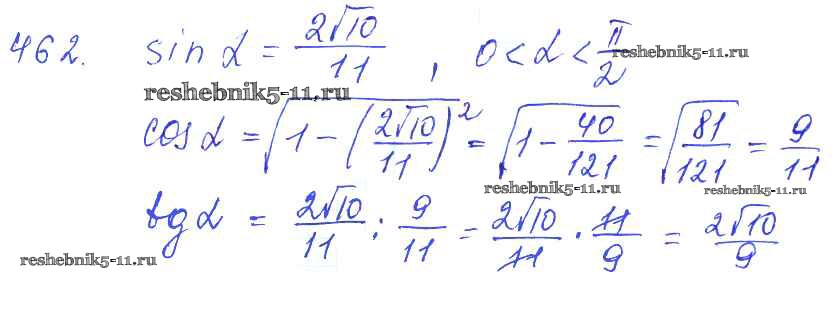 462. sin α = 2√10/11, 0 < α < π/2
reshebnik5-11.ru
reshebnik5-11.ru
cos α = √(1 − (2√10/11)²) = √(1 − 40/121) = √(81/121) = 9/11
reshebnik5-11.ru
reshebnik5-11.ru
tg α = 2√10/11 : 9/11 = 2√10/11 · 11/9 = 2√10/9
reshebnik5-11.ru